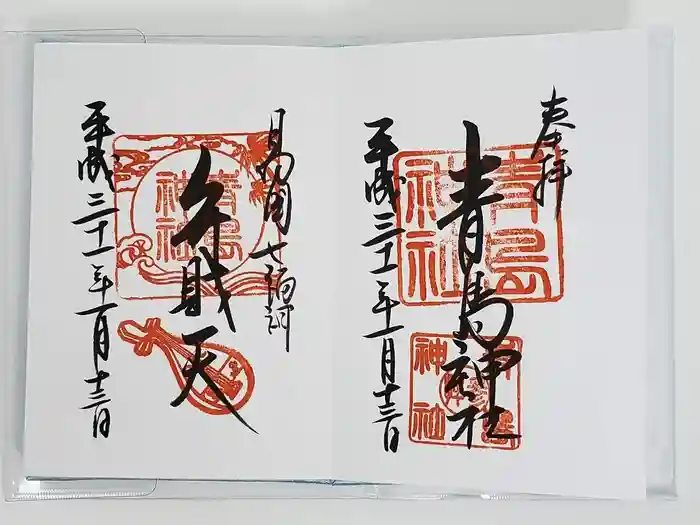 奉拝
青島神社
青島
神社
平成三十一年一月十三日
七福神
弁財天
青島
神社
平成三十一年一月十三日